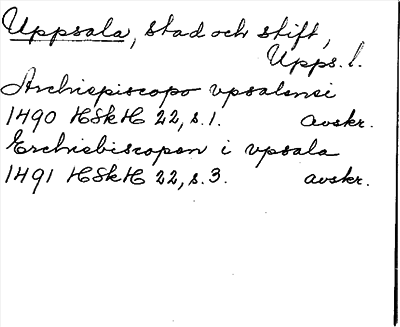 Uppsala, stad och stift,
Upps. l.
Archiepiscopo vpsalensi
1490 HSkH 22, s. 1. avskr.
Erchiebiscopen i vpsala
1491 HSkH 22, s. 3. avskr.